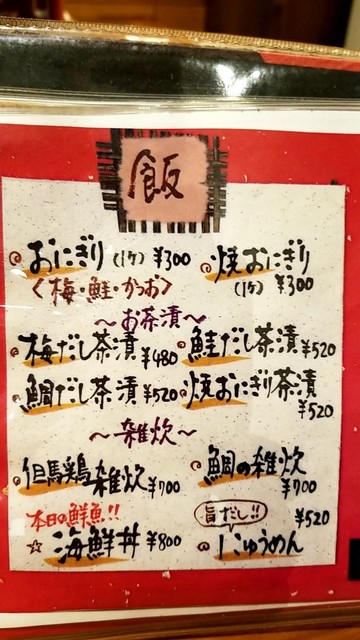 飯
おにぎり(1ケ) ¥300
〈梅・鮭・かつお〉
焼おにぎり
(1ケ) ¥300
～お茶漬～
梅だし茶漬 ¥480
鮭だし茶漬 ¥520
鯛だし茶漬 ¥520
焼おにぎり茶漬
¥520
～雑炊～
但馬鶏雑炊 ¥700
鯛の雑炊
¥700
本日の鮮魚!!
☆海鮮丼 ¥800
旨だし!!
¥520
にゅうめん